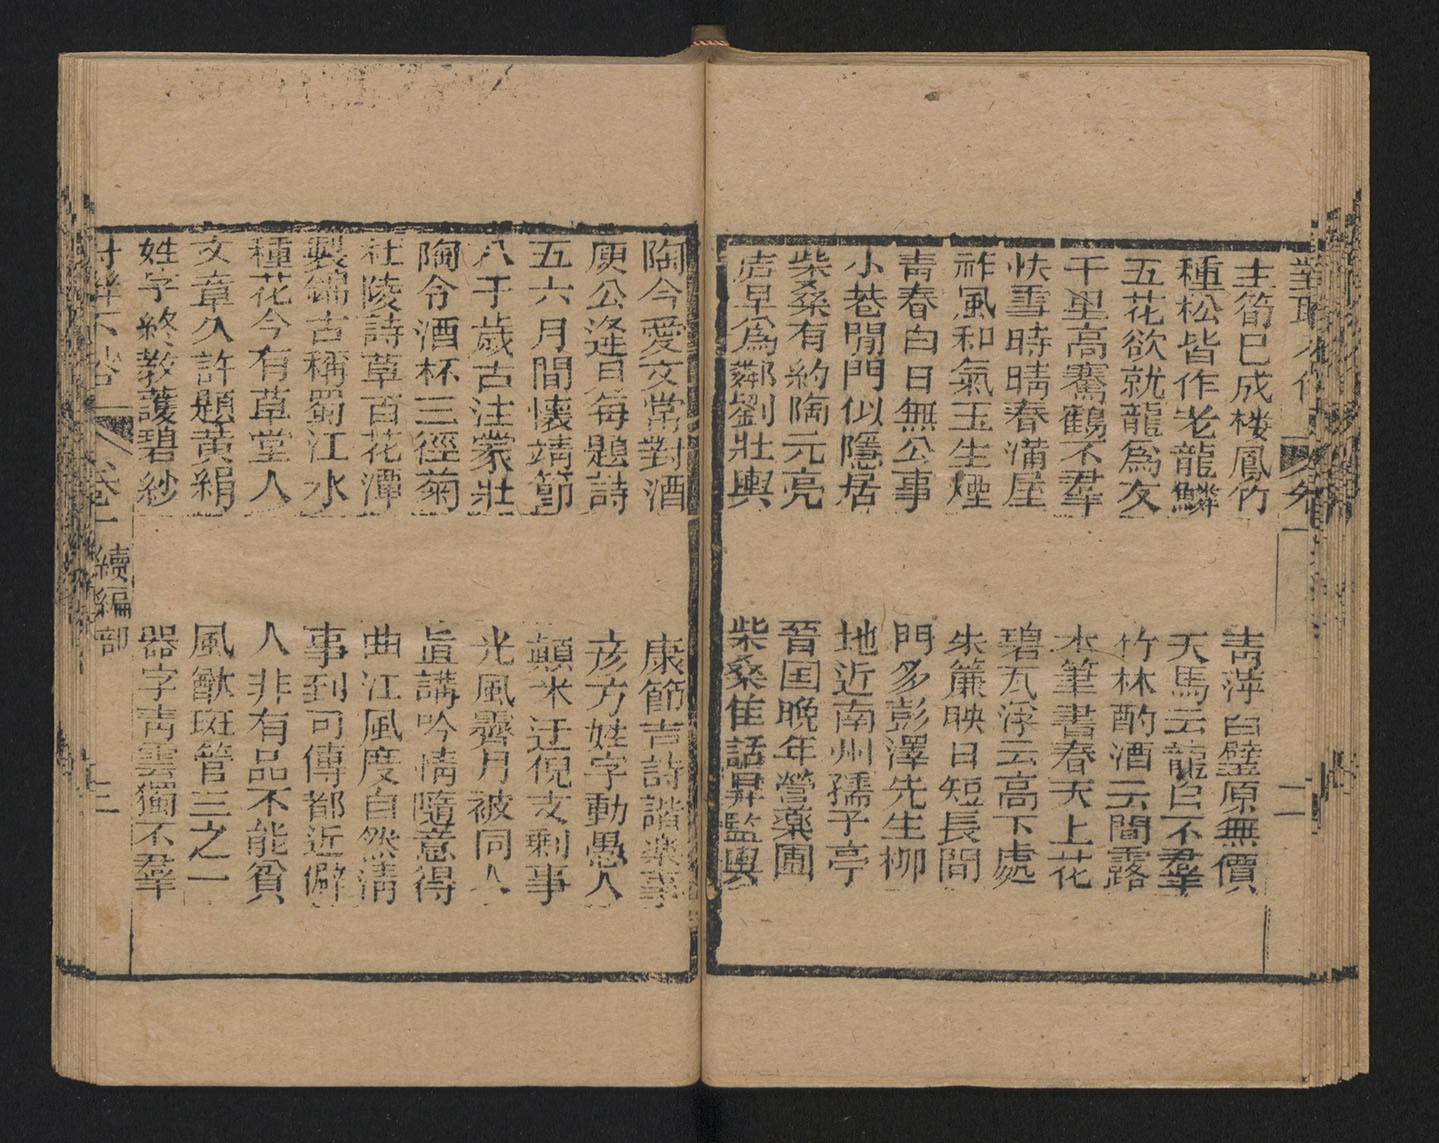 圭筍已成棲鳳竹
靑萍白璧原無價
種松皆作老龍鱗
天馬云龍自不羣
五花欲就龍為友
竹林酌酒云間露
千里高騫鶴不羣
木筆書春天上花
快雪時晴春滿屋
碧瓦浮云高下處
祚風和氣玉生煙
朱簾映日短長間
靑春白日無公事
門多彭澤先生柳
小巷閒門似隱居
地近南州孺子亭
柴桑有約陶元亮
晉囯晚年營藥圃
居早為鄰劉壯輿
柴桑隹話昇監輿
陶令愛文常對酒
康節吉詩諧楽事
庾公逢日每題詩
彦方姓字動愚人
五六月間懷靖節
顛米迂倪支剩事
八千歲古注蒙壯
光風霽月被同人
陶令酒杯三徑菊
旹講吟情隨意得
杜陵詩草百花潭
曲江風度自然淸
製錦古稱蜀江水
事到可傳都近僻
種花今有草堂人
人非有品不能貧
文章久許題黄絹
風猷斑管三之一
姓字終教護碧紗
器字靑雲獨不羣
卷一 續編
部
三